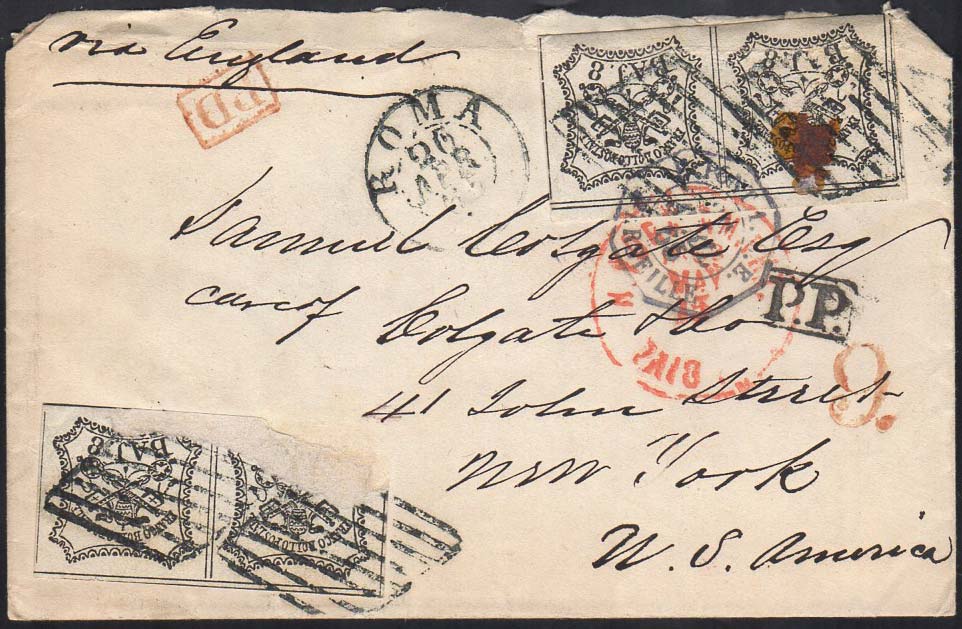 via England
PD
ROMA
26
APR
BAJ. 8
BAJ. 8
FRANCO BOLLO POSTALE
Samuel Colgate Esq
care of Colgate & Co
P.P.
MAY
PAID
9.
41 John Street
New York
U. S. America
BAJ. 8
8
FRANCO BOLLO POSTALE